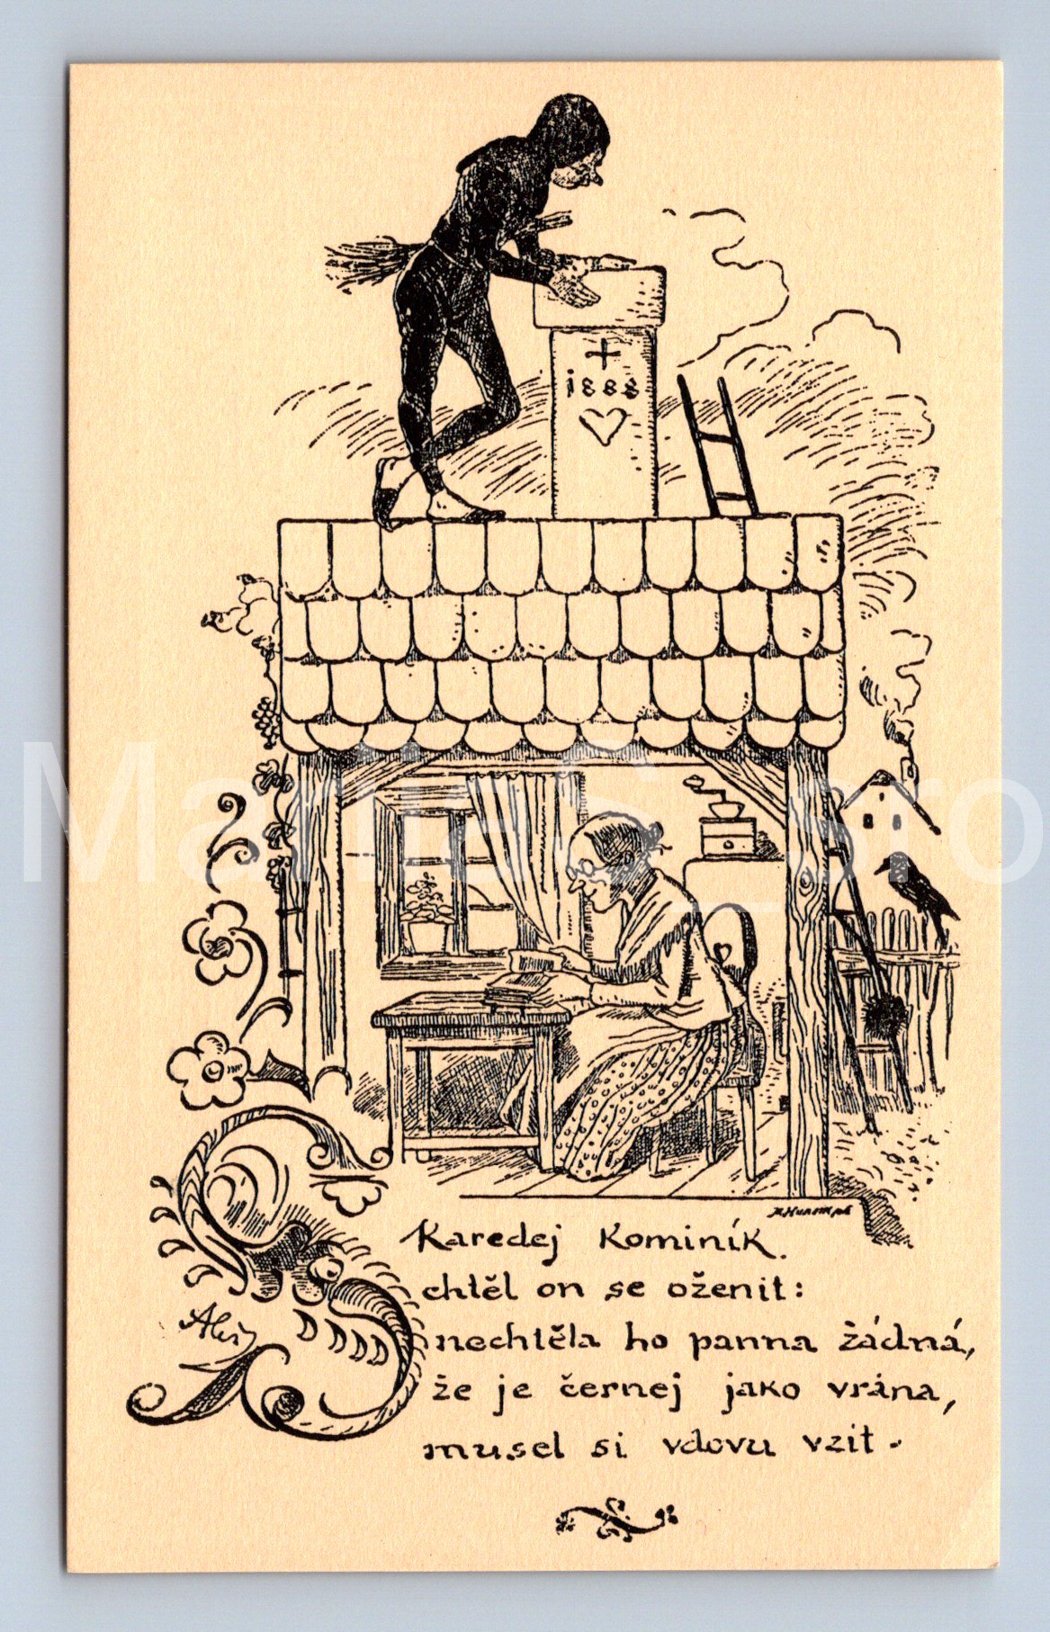 1888
Karedej Kominík.
chtěl on se oženit:
nechtěla ho panna žádná,
že je černej jako vrána,
musel si vdovu vzit.
Aleš